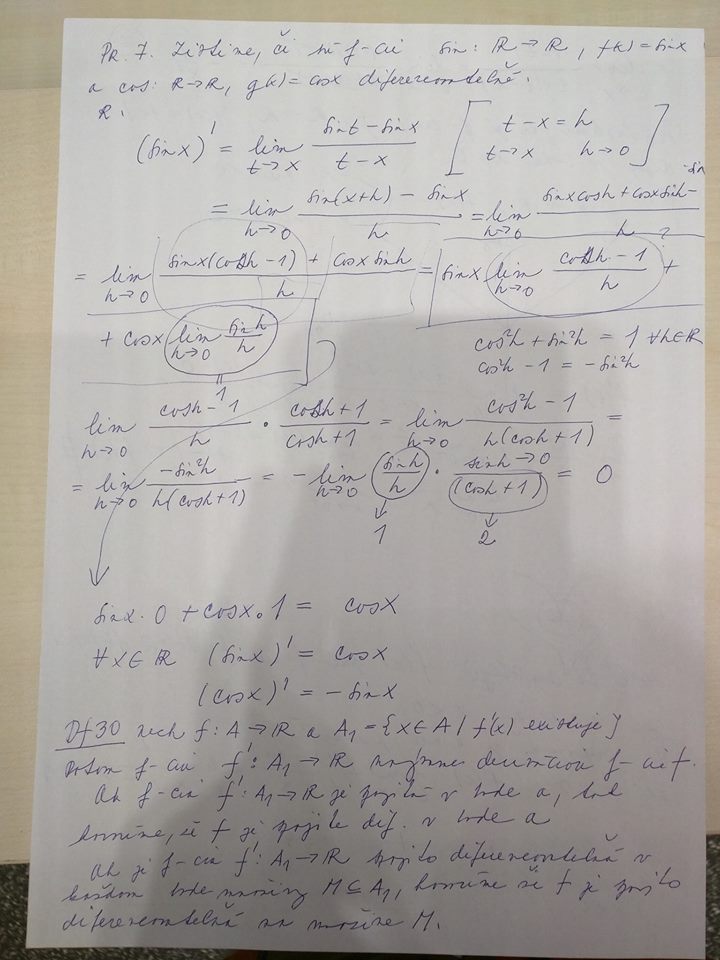 Pr. 7. Zistime, či sú f-cie sin: ℝ→ℝ, f(x) = sinx
a cos: ℝ→ℝ, g(x) = cosx diferencovateľné.
R.
(sinx)' = lim t→x (sint − sinx)/(t − x) [ t − x = h t→x h→0 ]
= lim h→0 (sin(x+h) − sinx)/h = lim h→0 (sinxcosh + cosxsinh − sin)/h
= lim h→0 (sinx(cosh − 1) + cosx sinh)/h = sinx lim h→0 (cosh − 1)/h +
+ cosx lim h→0 sinh/h
1
cos²h + sin²h = 1 ∀h∈ℝ
cos²h − 1 = −sin²h
lim h→0 (cosh − 1)/h · (cosh + 1)/(cosh + 1) = lim h→0 (cos²h − 1)/(h(cosh + 1)) =
= lim h→0 −sin²h/(h(cosh + 1)) = − lim h→0 sinh/h · sinh→0/(cosh + 1) = 0
1 2
sinx · 0 + cosx · 1 = cosx
∀x∈ℝ (sinx)' = cosx
(cosx)' = −sinx
Df 30 nech f: A→ℝ a A₁ = {x∈A / f'(x) existuje}
Potom f-ciu f': A₁→ℝ nazveme deriváciou f-cie f.
Ak f-cia f': A₁→ℝ je spojitá v bode a, tak
hovoríme, že f je spojite dif. v bode a
Ak je f-cia f': A₁→ℝ spojito diferencovateľná v
každom bode množiny M ⊆ A₁, hovoríme že f je spojito
diferencovateľná na množine M.